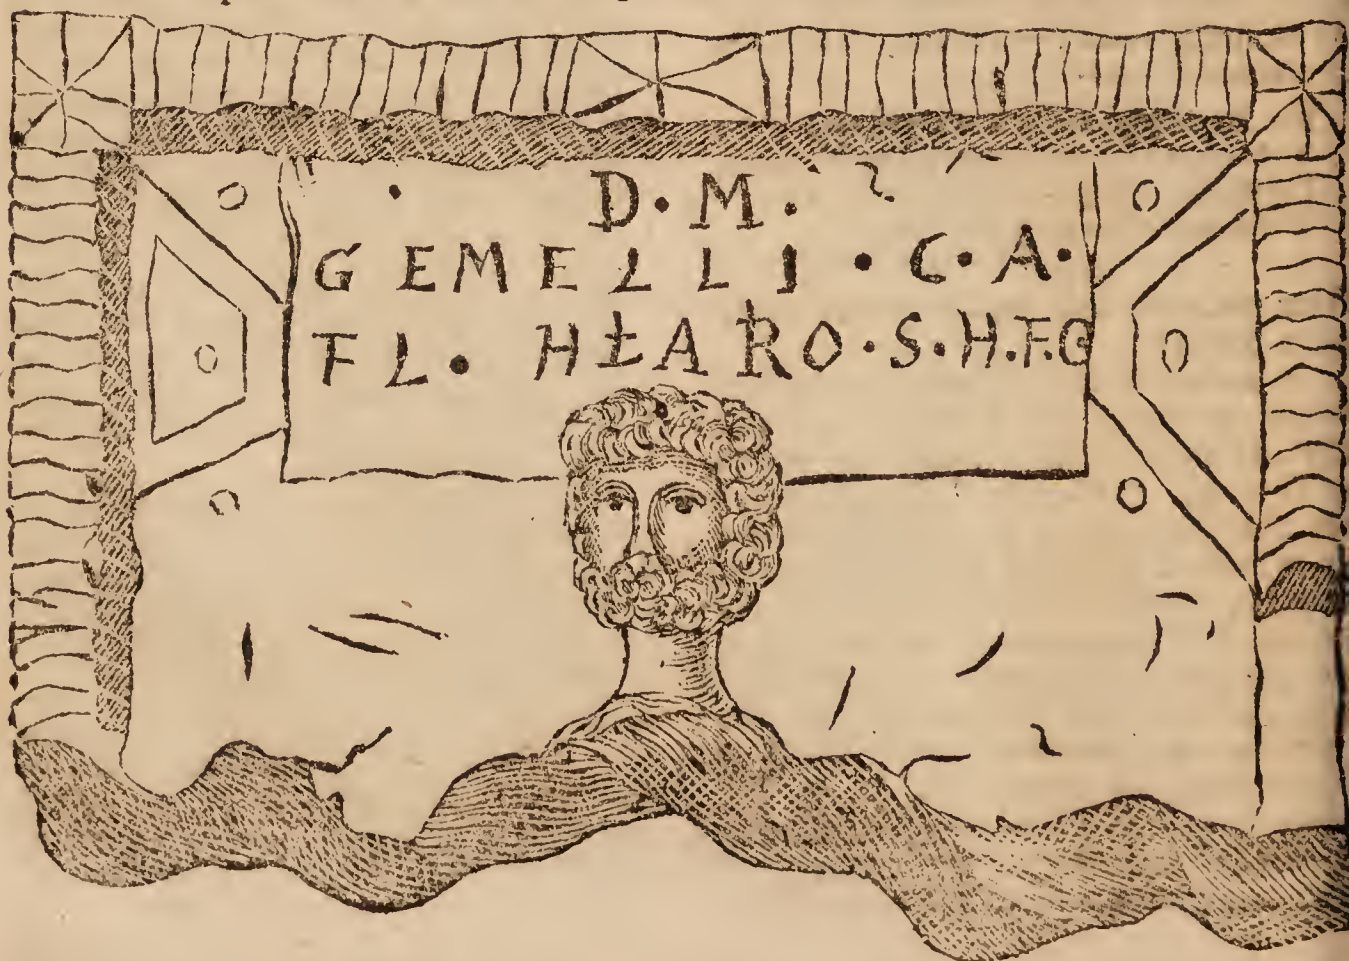 D·M·
GEMELLI·C·A·
FL·HŁARO·S·H·F·C